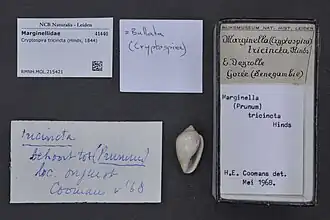 NCB Naturalis - Leiden
Marginellidae 41440
Cryptospira tricincta (Hinds, 1844)
RMNH.MOL.215421
= Bullata
(Cryptospira)
RIJKSMUSEUM NAT. HIST. LEIDEN
Marginella (Cryptospira)
tricincta, Hinds
Gorée (Senegambie)
Marginella
(Prunum)
tricincta
Hinds
H.E. Coomans det.
Mei 1968.
tricincta
behoort tot (Prunum)
loc. onjuist
Coomans '68